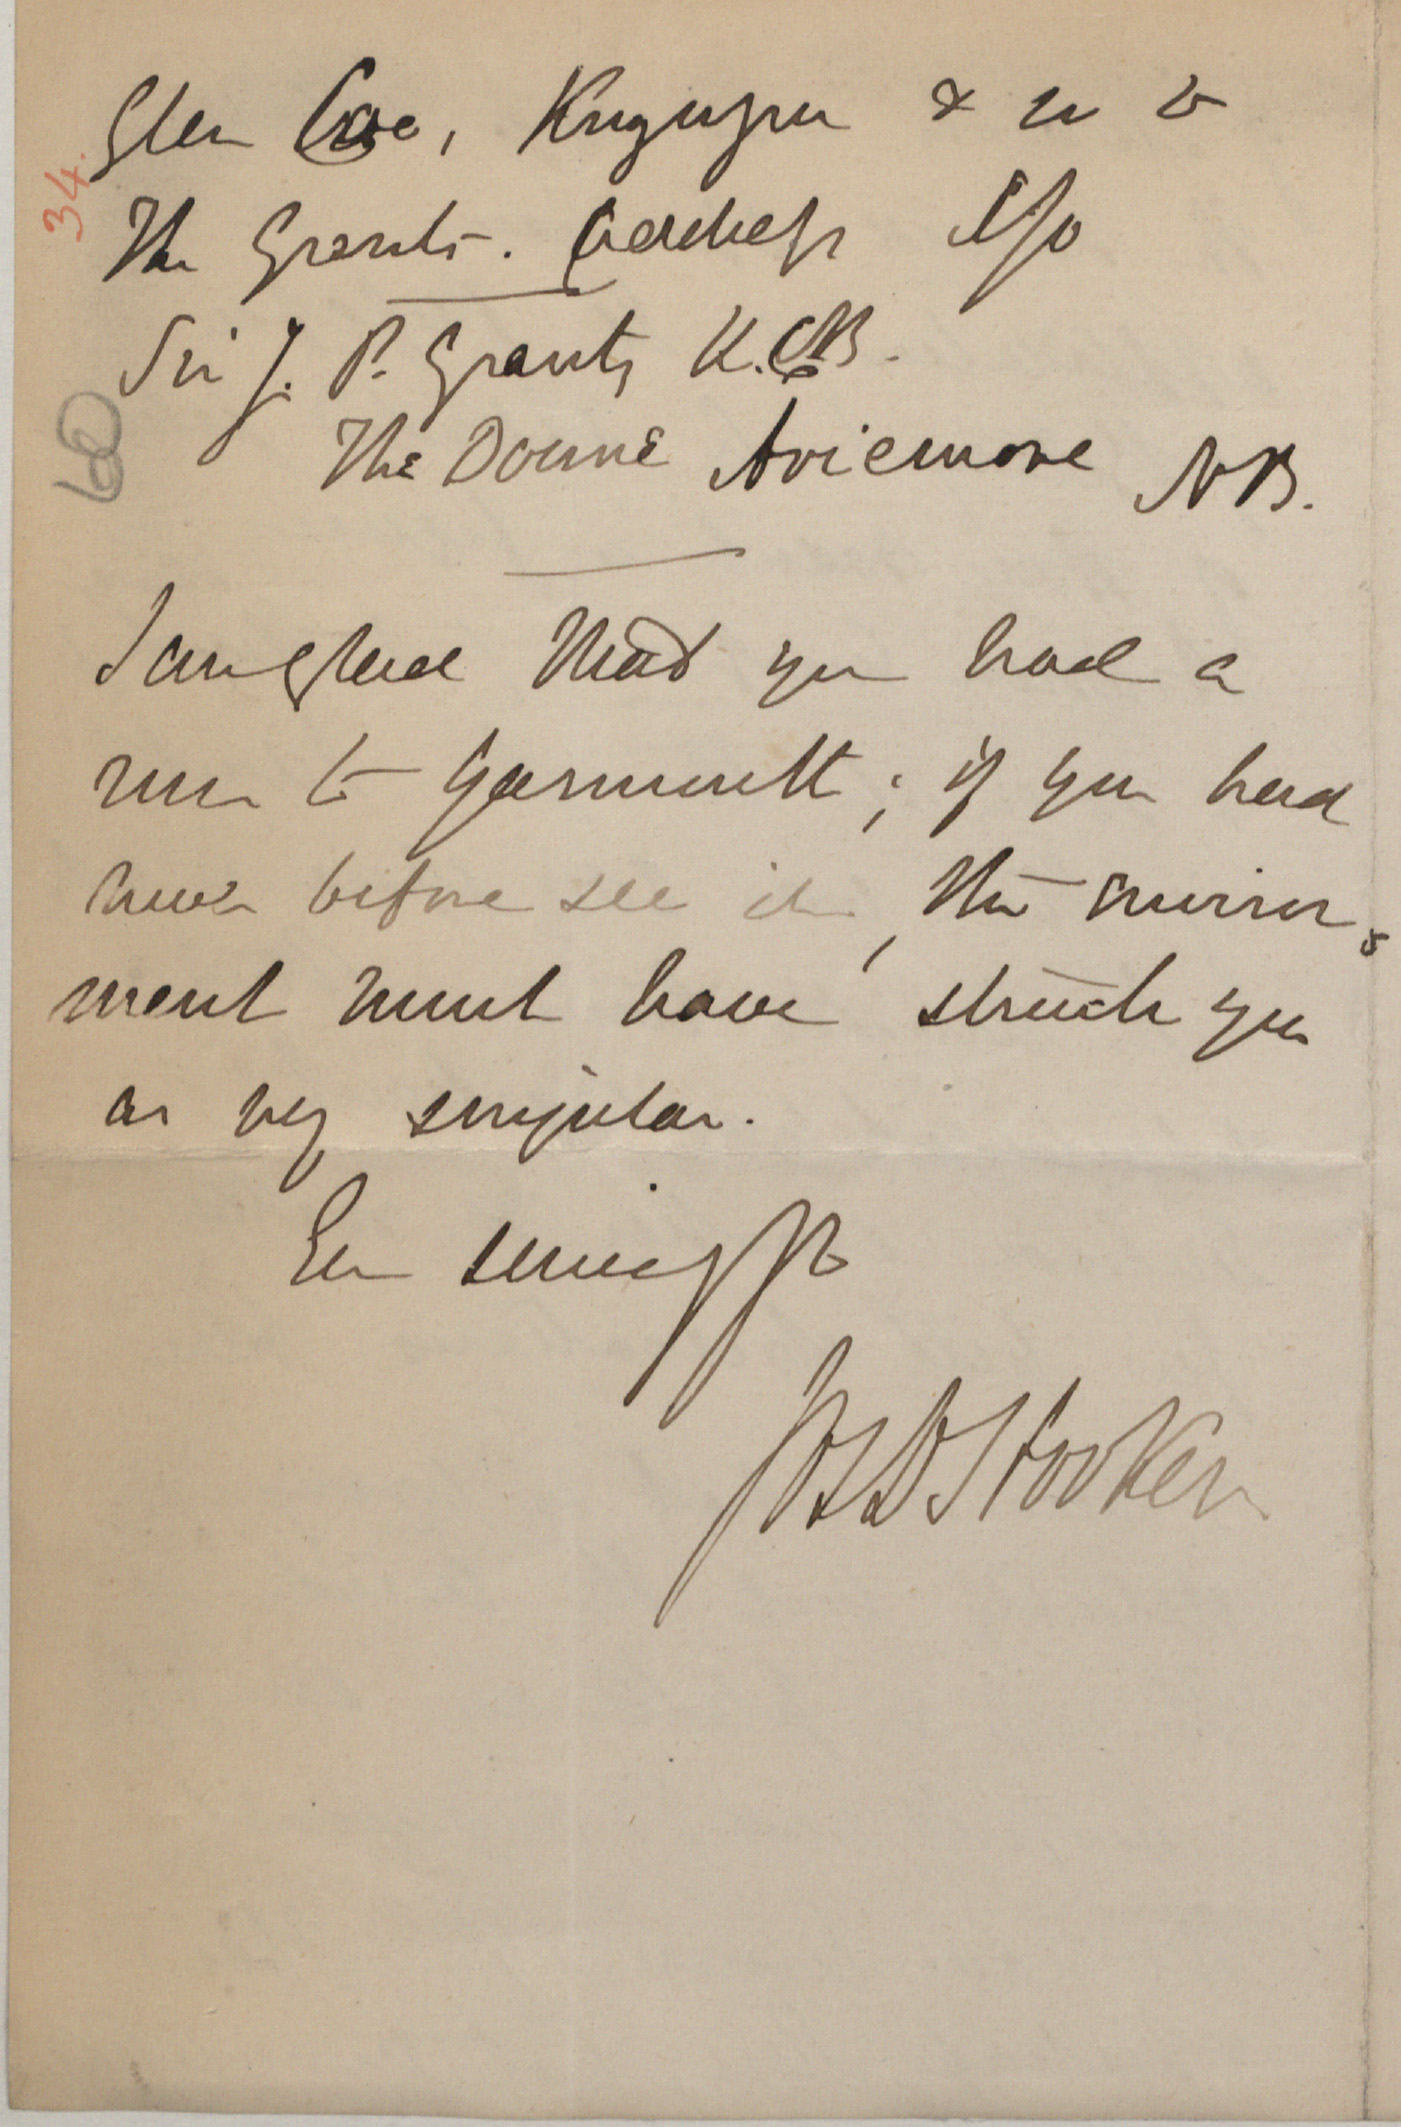 Glen Coe, Kingussie & so to
The Grants. (address c/o
Sir J. P. Grant, K.C.B.
The Doune Aviemore N.B.
I am glad that you had a
run to Yarmouth; if you had
never before see it, the
ment must have struck you
as very singular.
Ever sincerely
Jos D Hooker
34.
60